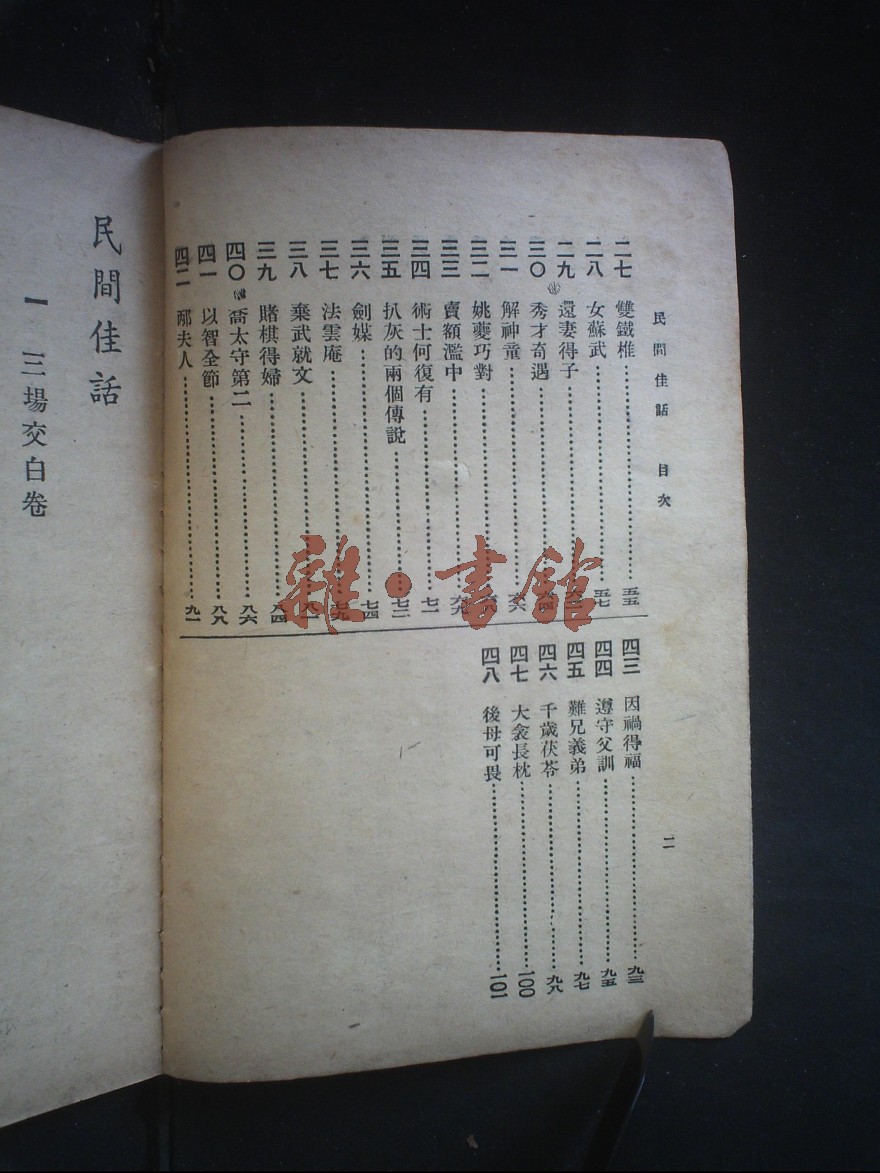 民間佳話 目次
二七 雙鐵椎 五五
二八 女蘇武 五七
二九 還妻得子
三〇 秀才奇遇 六四
三一 解神童 六六
三二 姚夔巧對 六八
三三 賣額濫中 六九
三四 術士何復有 七一
三五 扒灰的兩個傳說 七二
三六 劍媒 七四
三七 法雲庵 七九
三八 棄武就文 八一
三九 賭棋得婦 八四
四〇 喬太守第二 八六
四一 以智全節 八八
四二 邴夫人 九一
四三 因禍得福 九三
四四 遵守父訓 九五
四五 難兄義弟 九七
四六 千歲茯苓 九八
四七 大衾長枕 一〇〇
四八 後母可畏 一〇一
二
民間佳話
一 三場交白卷
雜·書館